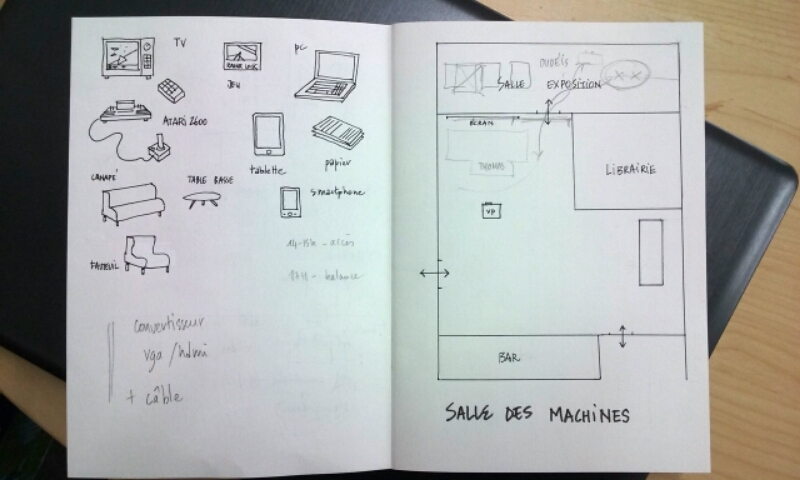 TV
JEU
PC
ATARI 2600
tablette
papier
CANAPÉ
TABLE BASSE
smartphone
FAUTEUIL
14-15h - accès
- balance
convertisseur
vga / hdmi
+ câble
SALLE EXPOSITION
ÉCRAN
THOMAS
LIBRAIRIE
VP
BAR
SALLE DES MACHINES